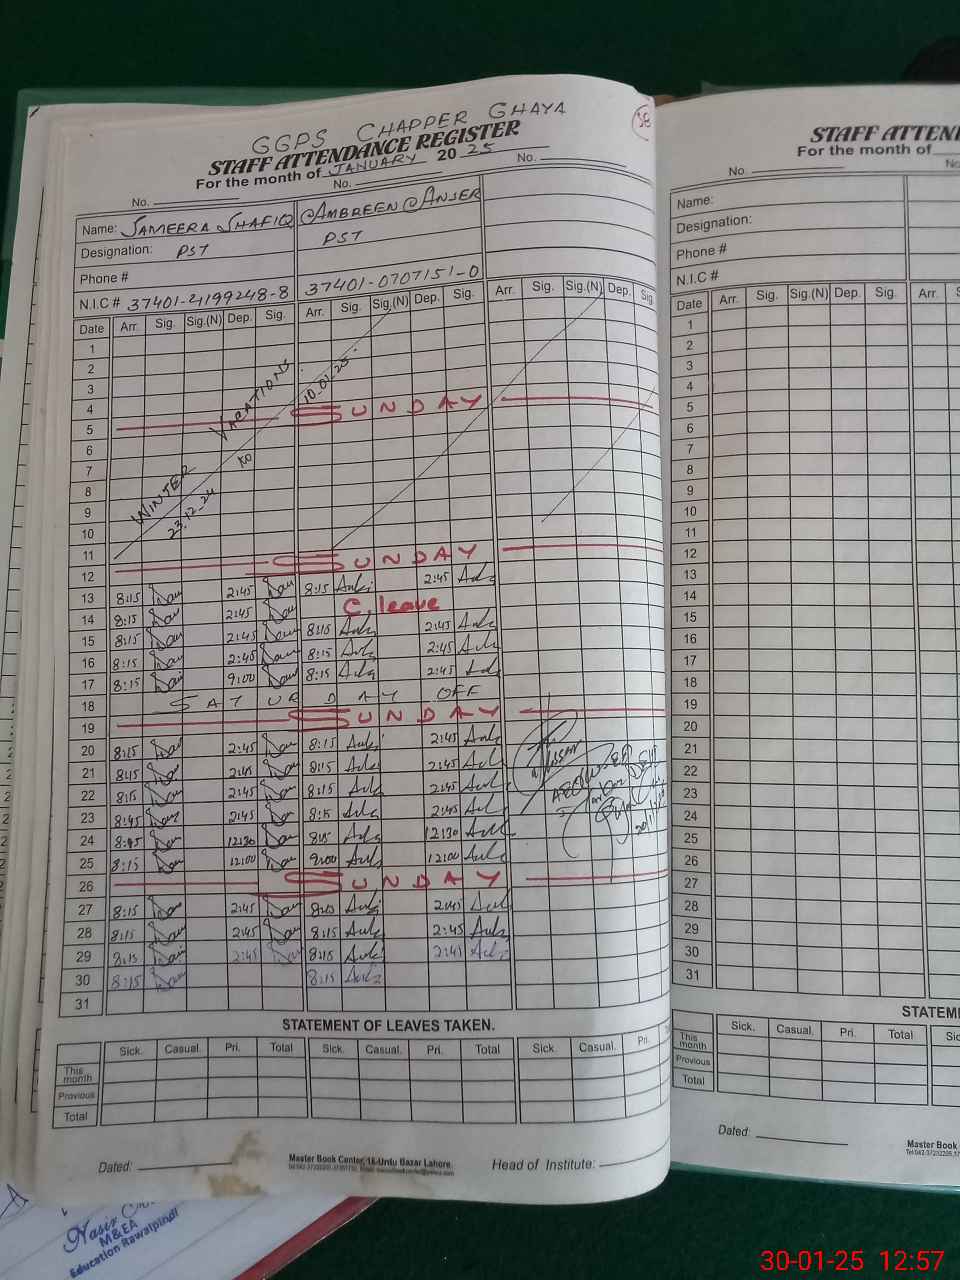 GGPS CHAPPER GHAYA
58
STAFF ATTENDANCE REGISTER
For the month of JANUARY 2025
No. No. No.
Name: SAMEERA SHAFIQ AMBREEN ANSER
Designation: PST PST
Phone #
N.I.C # 37401-4199248-8 37401-0707151-0
Date Arr. Sig. Sig.(N) Dep. Sig. Arr. Sig. Sig.(N) Dep. Sig. Arr. Sig. Sig.(N) Dep. Sig.
1
2
3
4
5 SUNDAY
6
7
8
9
10
11
WINTER VACATIONS
23.12.24 to 10.01.25.
12 SUNDAY
13 8:15 2:45 8:15 2:45
14 8:15 2:45 C. leave
15 8:15 2:45 8:15 2:45
16 8:15 2:45 8:15 2:45
17 8:15 9:00 8:15 2:45
18 SATURDAY OFF
19 SUNDAY
20 8:15 2:45 8:15 2:45
21 8:15 2:45 8:15 2:45
22 8:15 2:45 8:15 2:45
23 8:45 2:45 8:15 2:45
24 8:45 12:30 8:15 12:30
25 8:15 12:00 9:00 12:00
26 SUNDAY
27 8:15 2:45 8:15 2:45
28 8:15 2:45 8:15 2:45
29 8:15 2:45 8:15 2:45
30 8:15 8:15
31
STATEMENT OF LEAVES TAKEN.
Sick. Casual. Pri. Total Sick. Casual. Pri. Total Sick. Casual. Pri.
This month
Previous
Total
Dated: Master Book Center, 16-Urdu Bazar Lahore. Head of Institute:
STAFF ATTEN
For the month of
No. No.
Name:
Designation:
Phone #
N.I.C #
Date Arr. Sig. Sig.(N) Dep. Sig. Arr. S
1
2
3
4
5
6
7
8
9
10
11
12
13
14
15
16
17
18
19
20
21
22
23
24
25
26
27
28
29
30
31
STATEM
Sick. Casual. Pri. Total Sic
This month
Previous
Total
Dated:
Master Book
M&EA
Education Rawalpindi
30-01-25 12:57